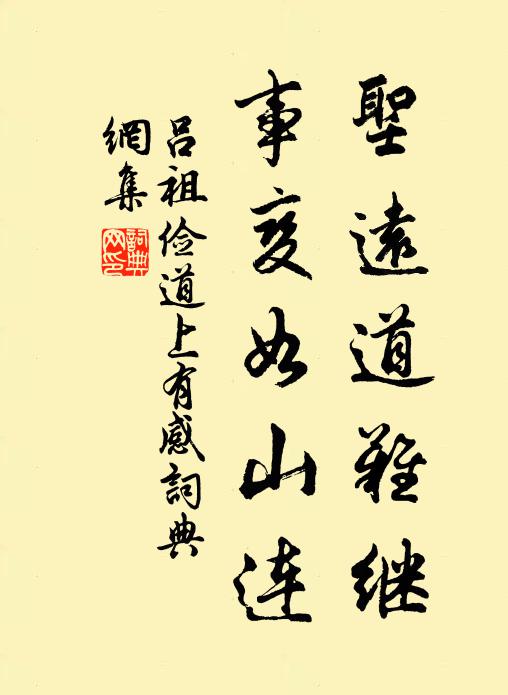 聖遠道難继
事变如山連
呂祖俭道上有感詞典
網集
詞典網印